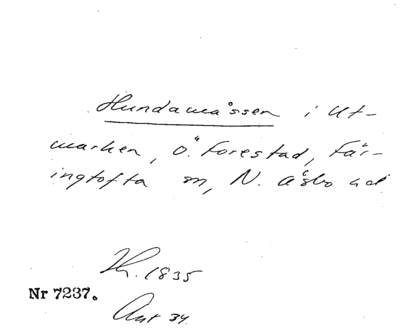 Hundamåssen i Ut-
marken, Ö. Forestad, Fär-
ingtofta sn, N. Åsbo hd
Kr. 1835
Nr 7237.
Ant 34